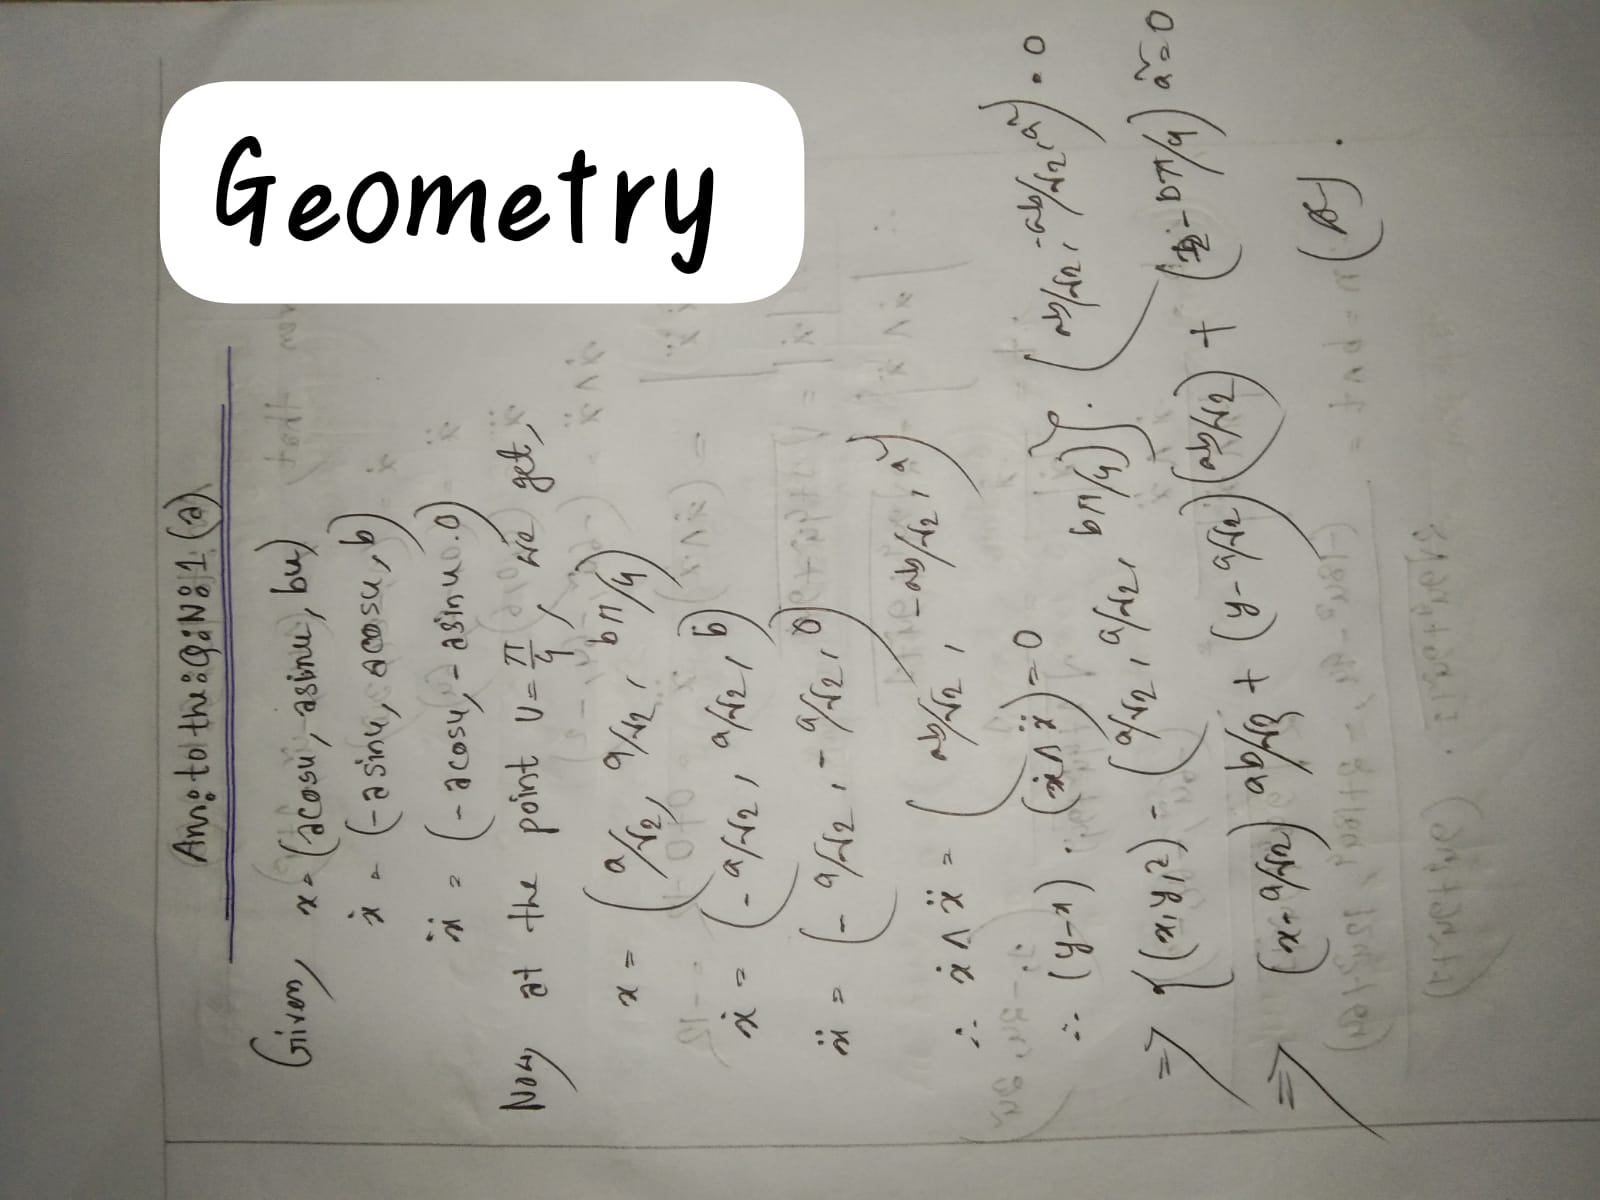 Geometry
Ans: to the: Q: No: 1 (a)
Given, x = (acosu, asinu, bu)
ẋ = (-asinu, acosu, b)
ẍ = (-acosu, -asinu.0)
Now, at the point u = π/4, we get,
x = (a/√2, a/√2, bπ/4)
ẋ = (-a/√2, a/√2, b)
ẍ = (-a/√2, -a/√2, 0)
∴ ẋ ∧ ẍ = (ab/√2, -ab/√2, a²)
∴ (y-x) . (ẋ ∧ ẍ) = 0
⇒ {(x,y,z) - (a/√2, a/√2, bπ/4)} . (ab/√2, -ab/√2, a²) = 0
⇒ (x-a/√2) ab/√2 + (y-a/√2) (ab/√2) + (z-bπ/4) a² = 0